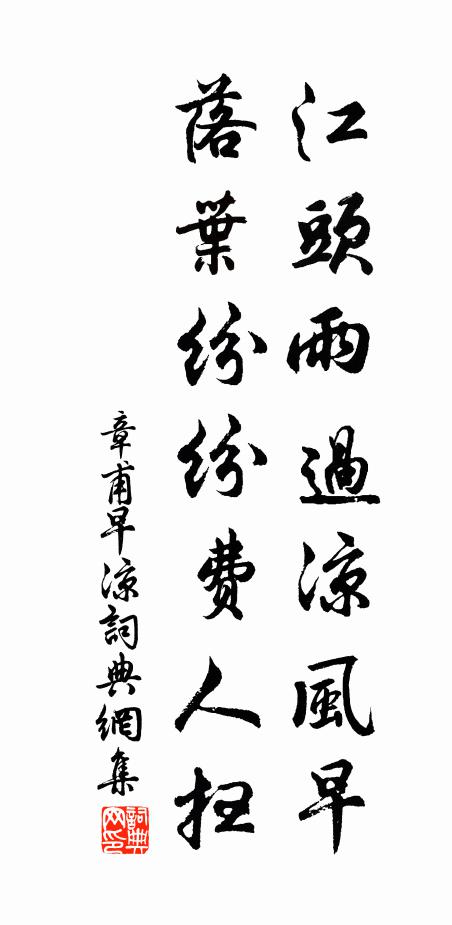 江頭雨過涼風早
落葉紛紛費人掃
章甫早涼詞典網集
詞典網印